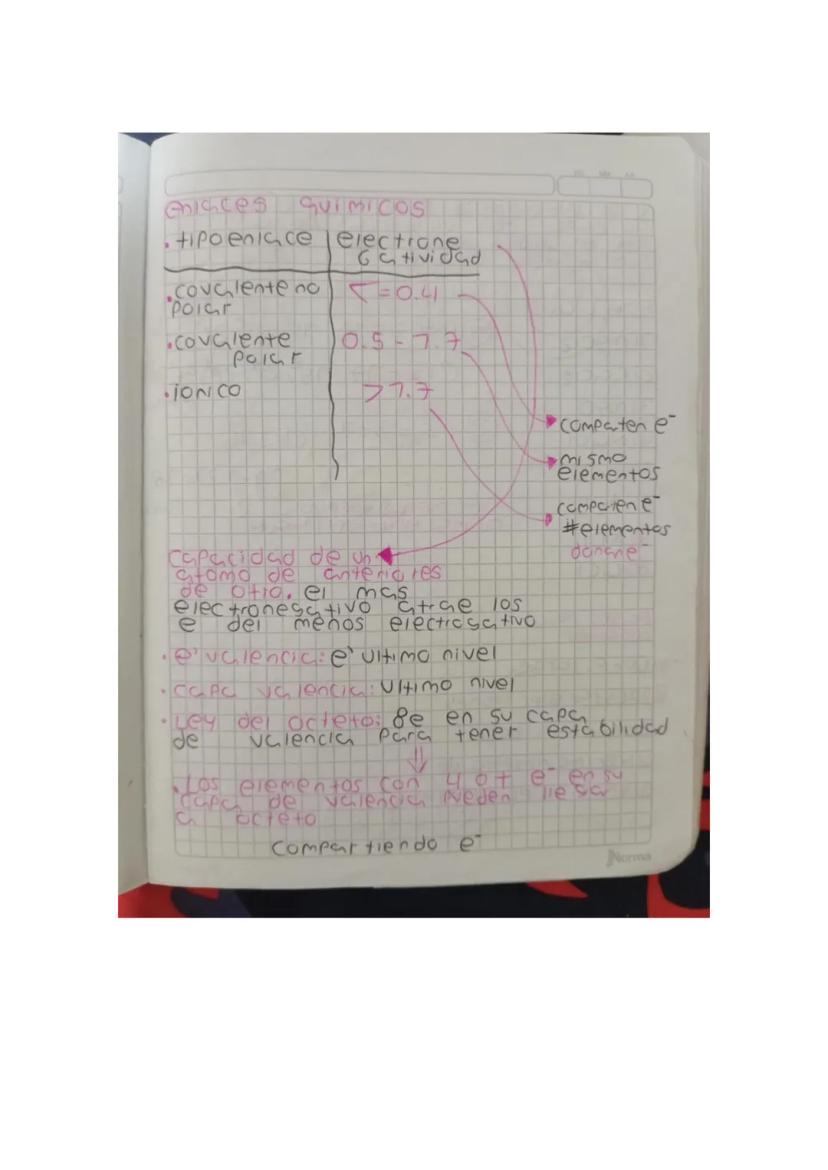 enlaces quimicos
. tipo enlace | electrone
gatividad
. covalente no
polar
< = 0.4
. covalente
polar
0.5 - 1.7
. ionico
> 1.7
compaten e-
mismo
elementos
comparten e-
# elementos
donan e-
capacidad de un
atomo de anteriores
de otro. el mas
electronegativo atrae los
e del menos electrogativo
. e- valencia: e- ultimo nivel
. capa valencia: ultimo nivel
. Ley del octeto: 8e en su capa
de valencia para tener estabilidad
. Los elementos con 4 o + e- en su
capa de valencia
a octeto
compartiendo e-
Norma